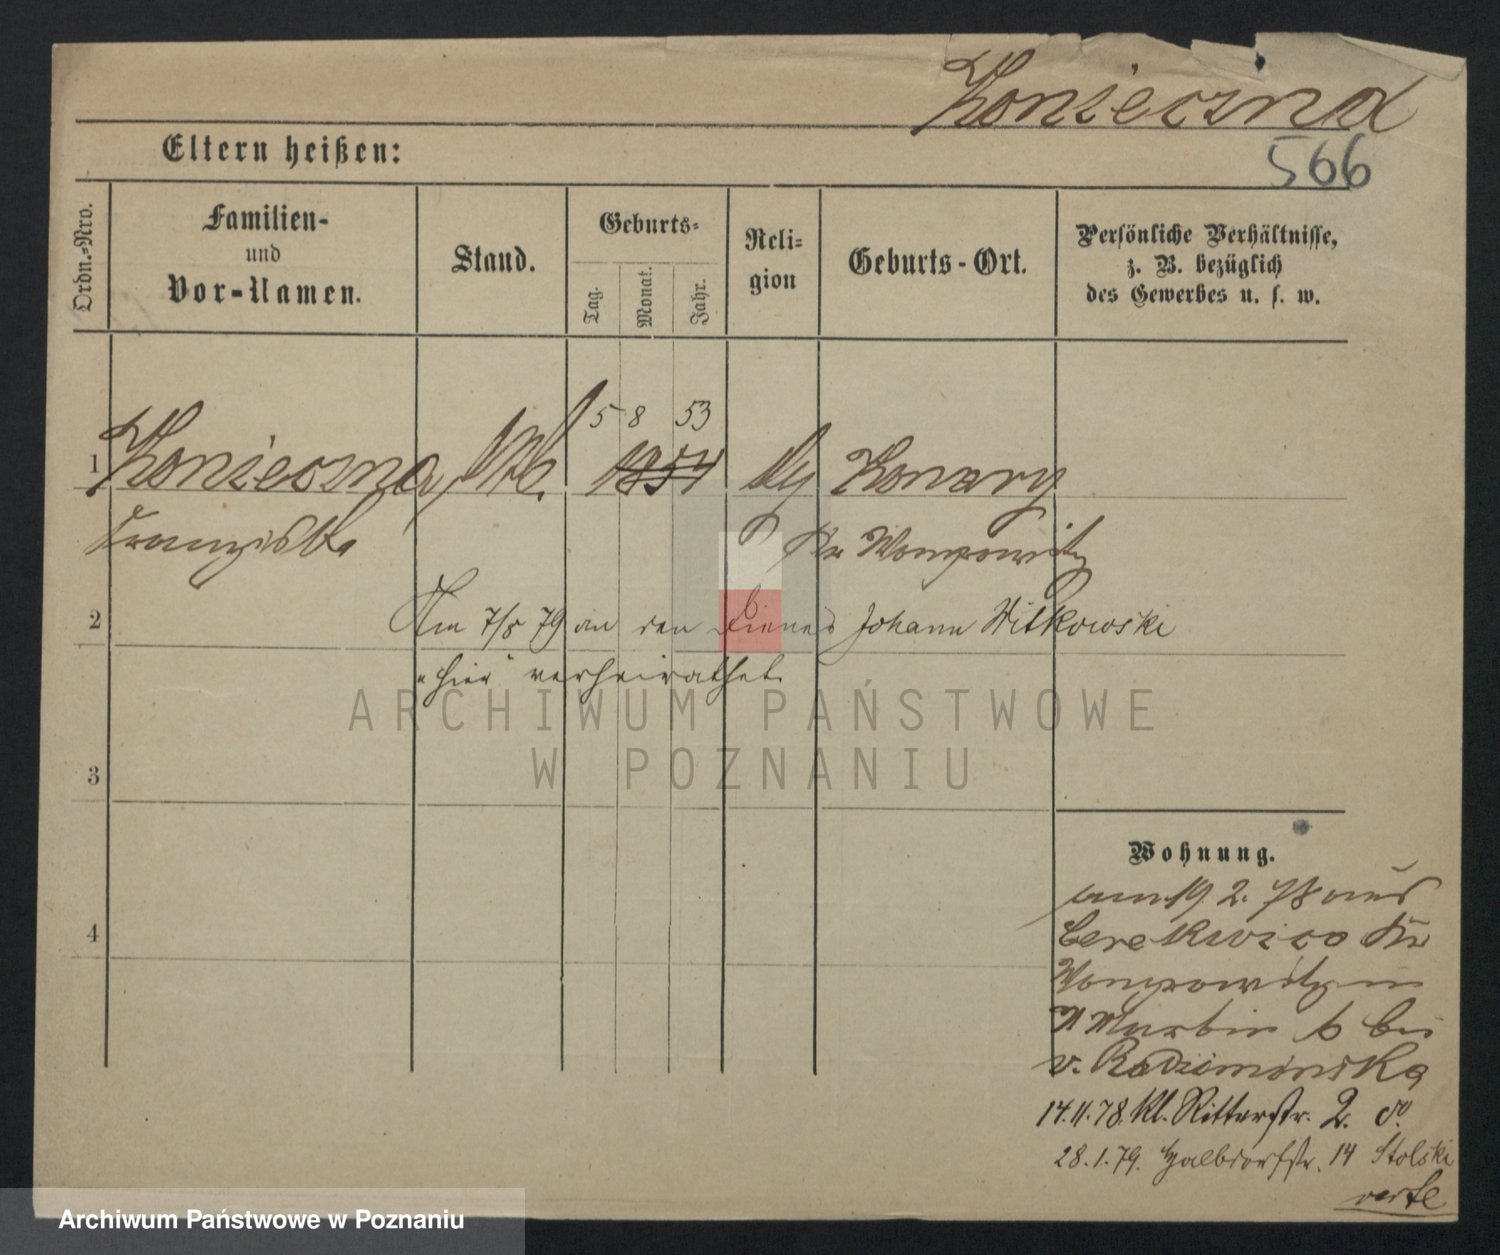 Konieczna
566
Eltern heißen:
Ordn.-Nro.
Familien-
und
Vor-Namen.
Stand.
Geburts-
Tag.
Monat.
Jahr.
Reli-
gion
Geburts-Ort.
Persönliche Verhältnisse,
z. B. bezüglich
des Gewerbes u. s. w.
5 8 53
1 Konieczna, 1854 Konary
Franziska Kr Wongrowitz
2 Am 7/8 79 an den Diener Johann Witkowski
"hier" verheirathet.
ARCHIWUM PAŃSTWOWE
W POZNANIU
3
Wohnung.
am 19. 2. 78 aus
Cerekwica Kr
4
Wongrowitz
St Martin 6 bei
v. Radziminska
14.11.78. Kl. Ritterstr. 2.
28.1.79. Halbdorfstr. 14 Stolski
verte
Archiwum Państwowe w Poznaniu